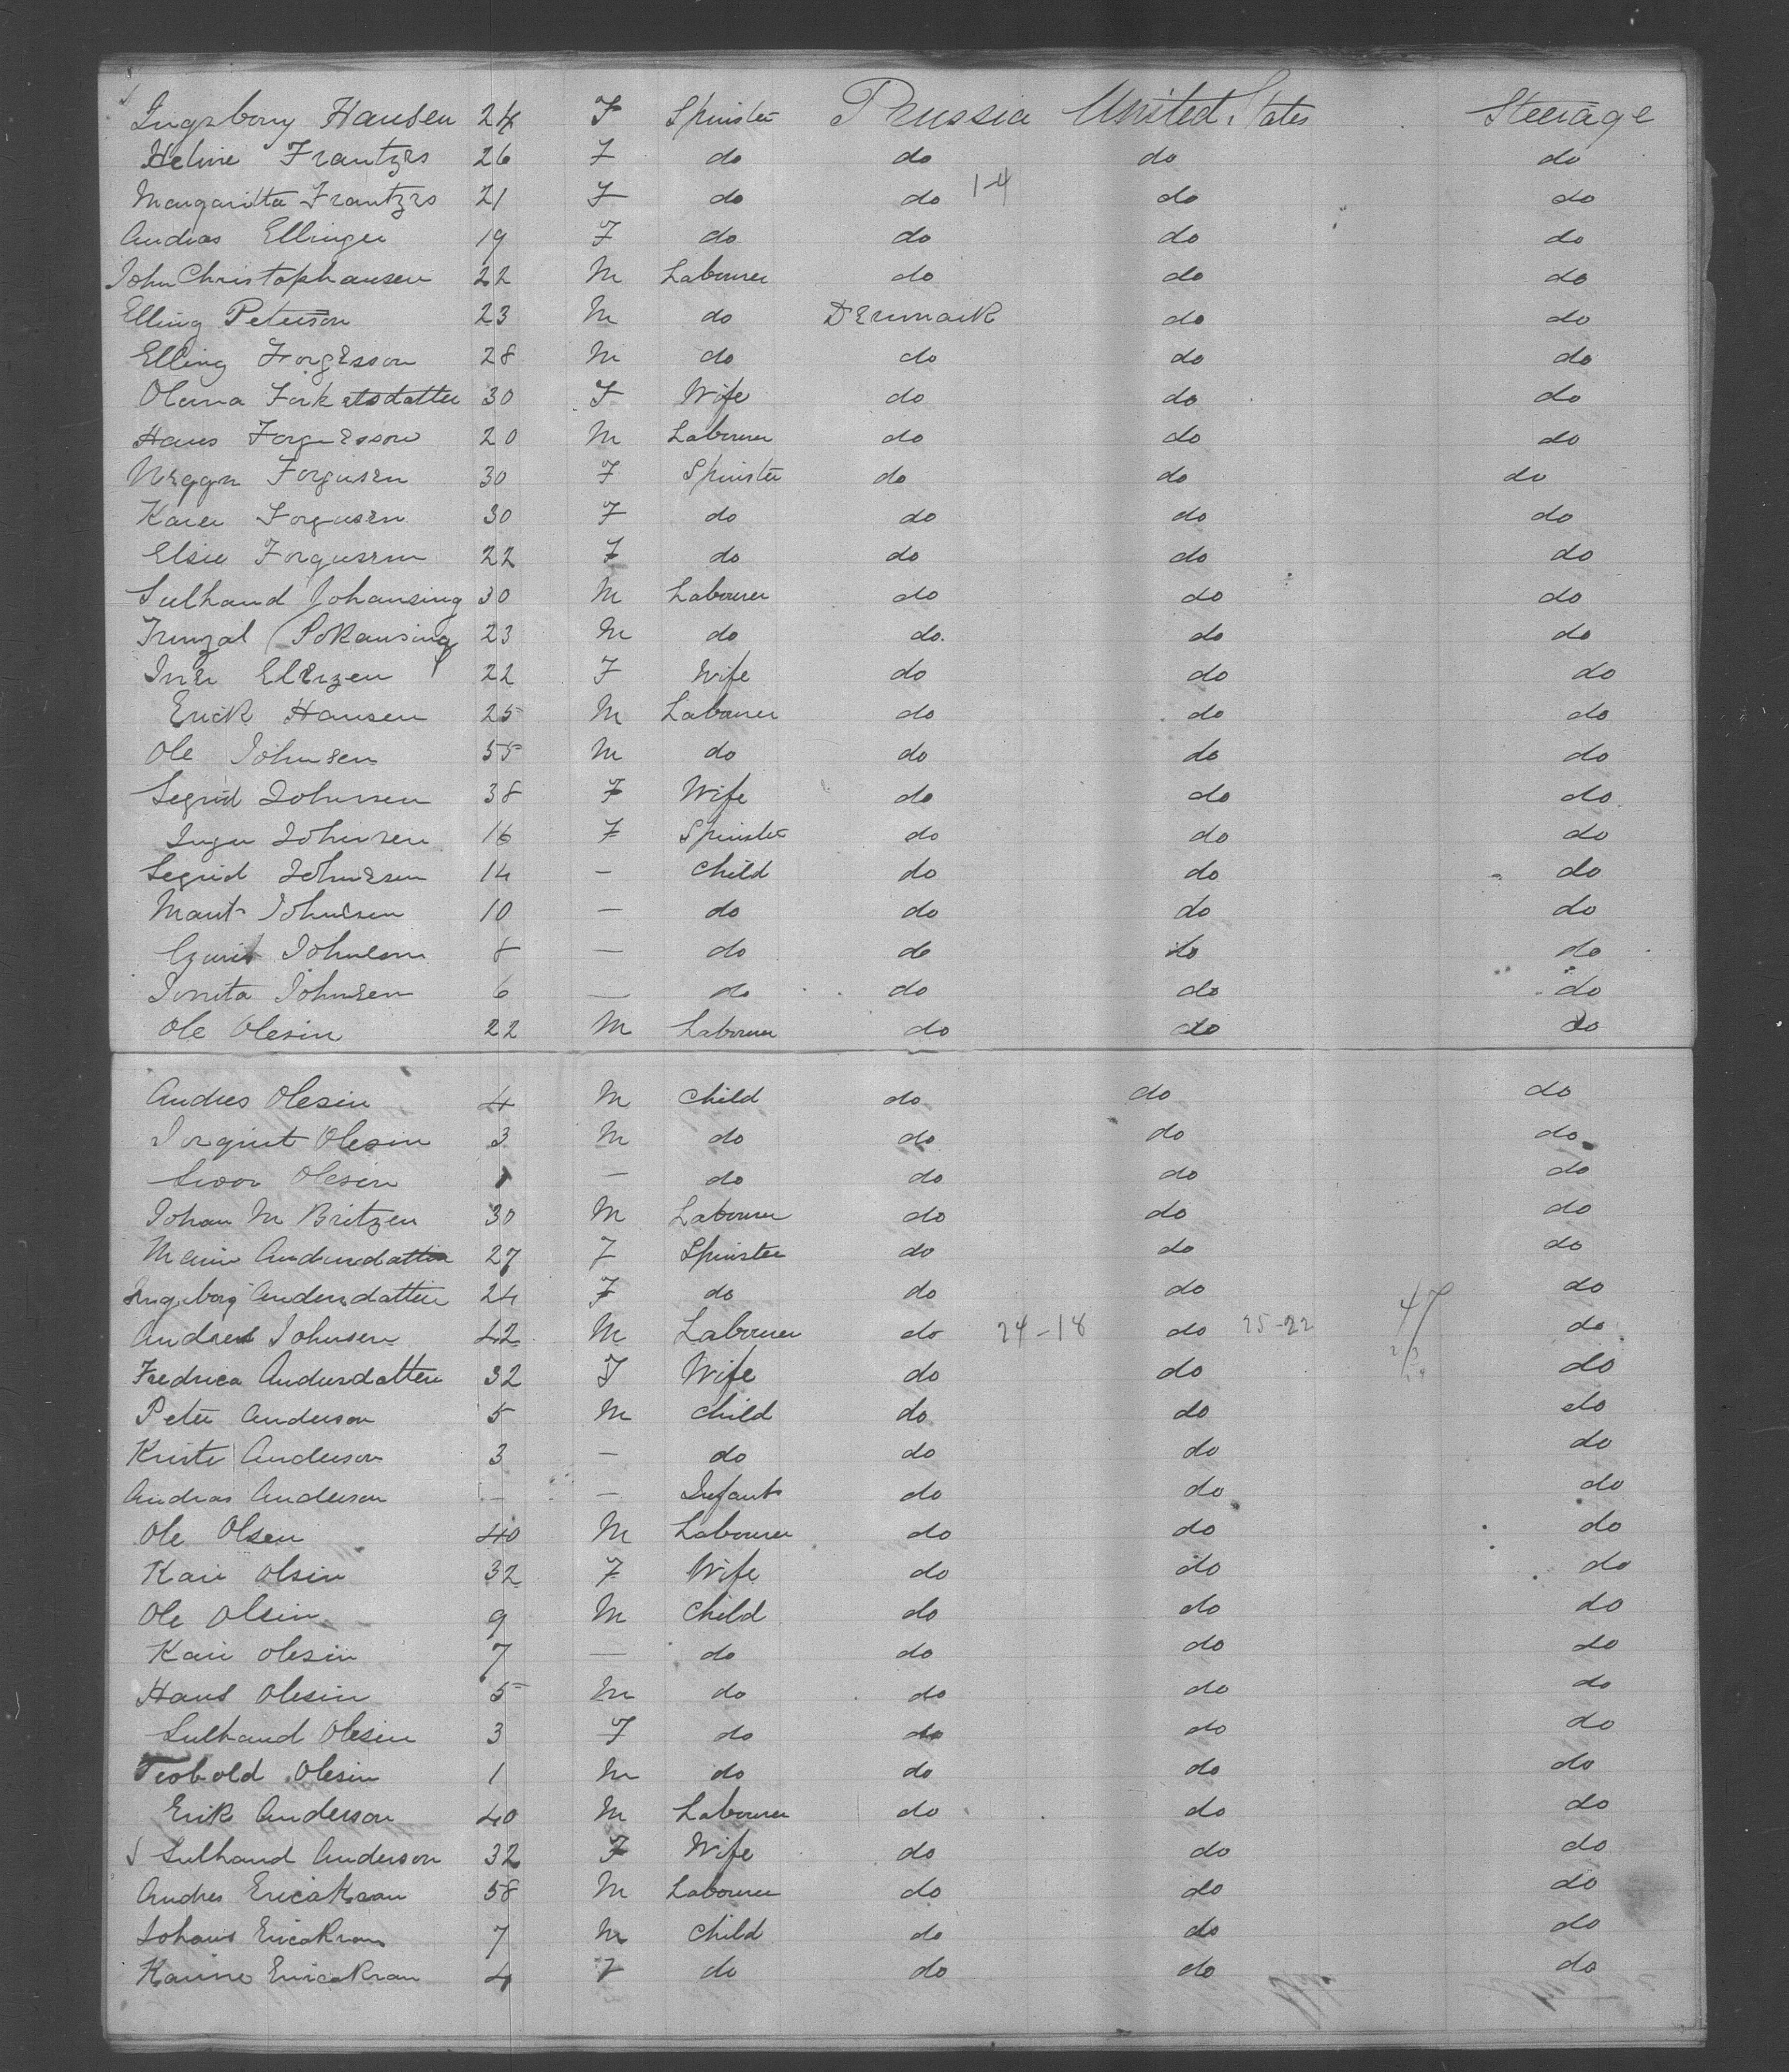 Ingabory Hansen 24 F Spinster Prussia United States Steerage
Heline Frantzes 26 F do do do do
Margaritta Frantzes 21 F do do 1-4 do do
Andras Ellinger 19 F do do do do
John Christophausen 22 M Labourer do do do
Elling Peterson 23 M do Denmark do do
Elling Forgesson 28 M do do do do
Olema Forkelsdatter 30 F Wife do do do
Hans Forgusson 20 M Labourer do do do
Forgusen 30 F Spinster do do do
Karen Forgusen 30 F do do do do
Elsie Forgusen 22 F do do do do
Sulhand Johansing 30 M Labourer do do do
23 M do do do do
Iner Elerzen 22 F Wife do do do
Erick Hansen 25 M Labourer do do do
Ole Johnsen 55 M do do do do
Segrid Johnsen 38 F Wife do do do
Inger Johnsen 16 F Spinster do do do
Segrid Johnsen 14 — Child do do do
Marit Johnsen 10 — do do do do
Johnsen 8 — do do do do
Johnsen 6 — do do do do
Ole Olesin 22 M Labourer do do do
Andres Olesin 4 M Child do do do
Olesin 3 M do do do do
Sivor Olesin 1 — do do do do
Johan M Britzen 30 M Labourer do do do
Andersdatter 27 F Spinster do do do
Ingeborg Andersdatter 24 F do do do do
Andres Johnsen 42 M Labourer do 24-18 do 25-22 47 do
Fredrica Andersdatter 32 F Wife do do do
Peter Anderson 5 M Child do do do
Kristi Anderson 3 — do do do do
Andras Anderson — — Infant do do do
Ole Olsen 40 M Labourer do do do
Kari Olsin 32 F Wife do do do
Ole Olsin 9 M Child do do do
Kari Olesin 7 — do do do do
Hans Olesin 5 M do do do do
Sulhand Olesin 3 F do do do do
Tiobold Olesin 1 M do do do do
Erik Anderson 40 M Labourer do do do
Sulhand Anderson 32 F Wife do do do
Andres Ericakran 58 M Labourer do do do
Johans Ericakran 7 M Child do do do
Karine Ericakran 4 F do do do do